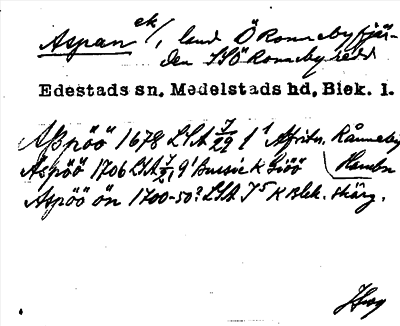 Aspan ek/, land Ö Ronnebyfjär-
den SSÖ Ronneby redd
Edestads sn. Medelstads hd, Blek. l.
Aßpöö 1678 LSA 7/29 1¹ Afritn. Rånneby
Aspöö 1706 LSA 7/21 9¹ Hambn
Aspöö ön 1700-50? LSA 7⁵ K Blek. skärg.